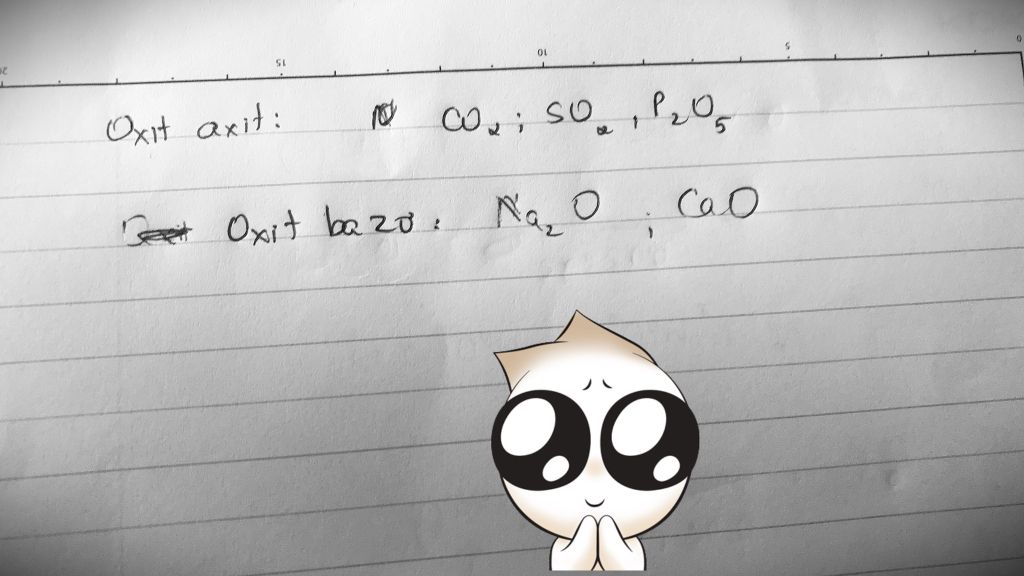 20 15 10 5 0
Oxit axit: CO₂; SO₂, P₂O₅
Oxit bazơ: Na₂O; CaO